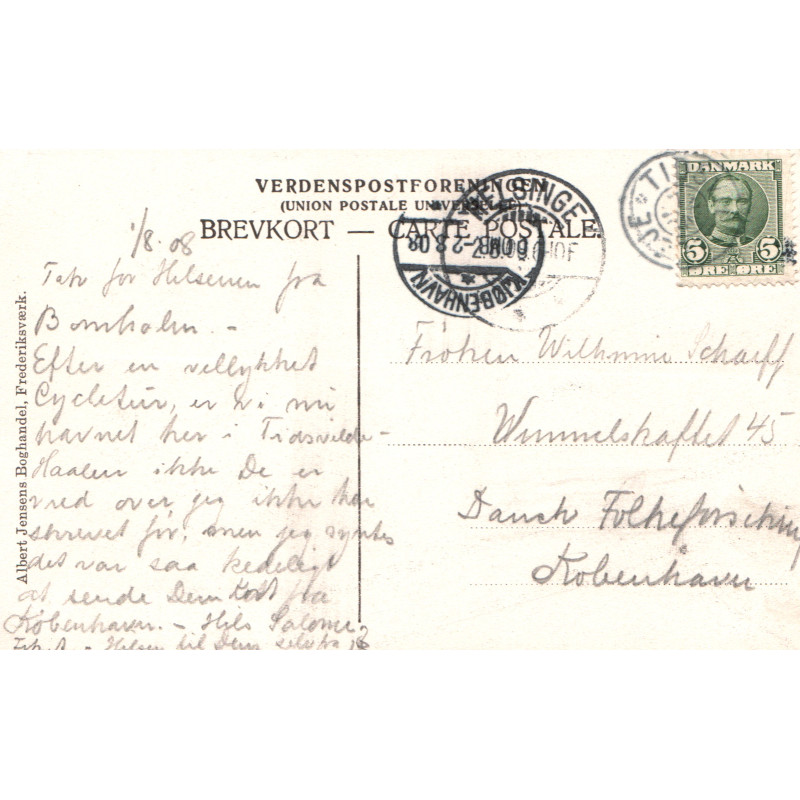 VERDENSPOSTFORENINGEN
(UNION POSTALE UNIVERSELLE)
BREVKORT — CARTE POSTALE.
DANMARK
5 5
ØRE ØRE
HELSINGE
KJØBENHAVN
2.8.08
TI
1/8.08
Tak for Hilsenen fra
Bornholm. -
Efter en vellykket
Cycletur, er vi nu
havnet her i Tidsvilde-
Haaber ikke De er
vred over jeg ikke har
skrevet før, men jeg syntes
det var saa kedeligt
at sende Dem Kort fra
København. - Hils Salome
- Hilsen til Dem selv fra
Frøken Wilhelmine Scharff
Wimmelskaftet 45
Dansk Folkeforsikring
København
Albert Jensens Boghandel, Frederiksværk.